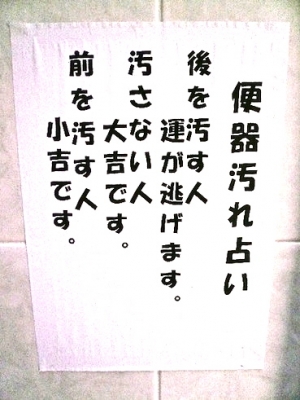 便器汚れ占い
後を汚す人
運が逃げます。
汚さない人
大吉です。
前を汚す人
小吉です。